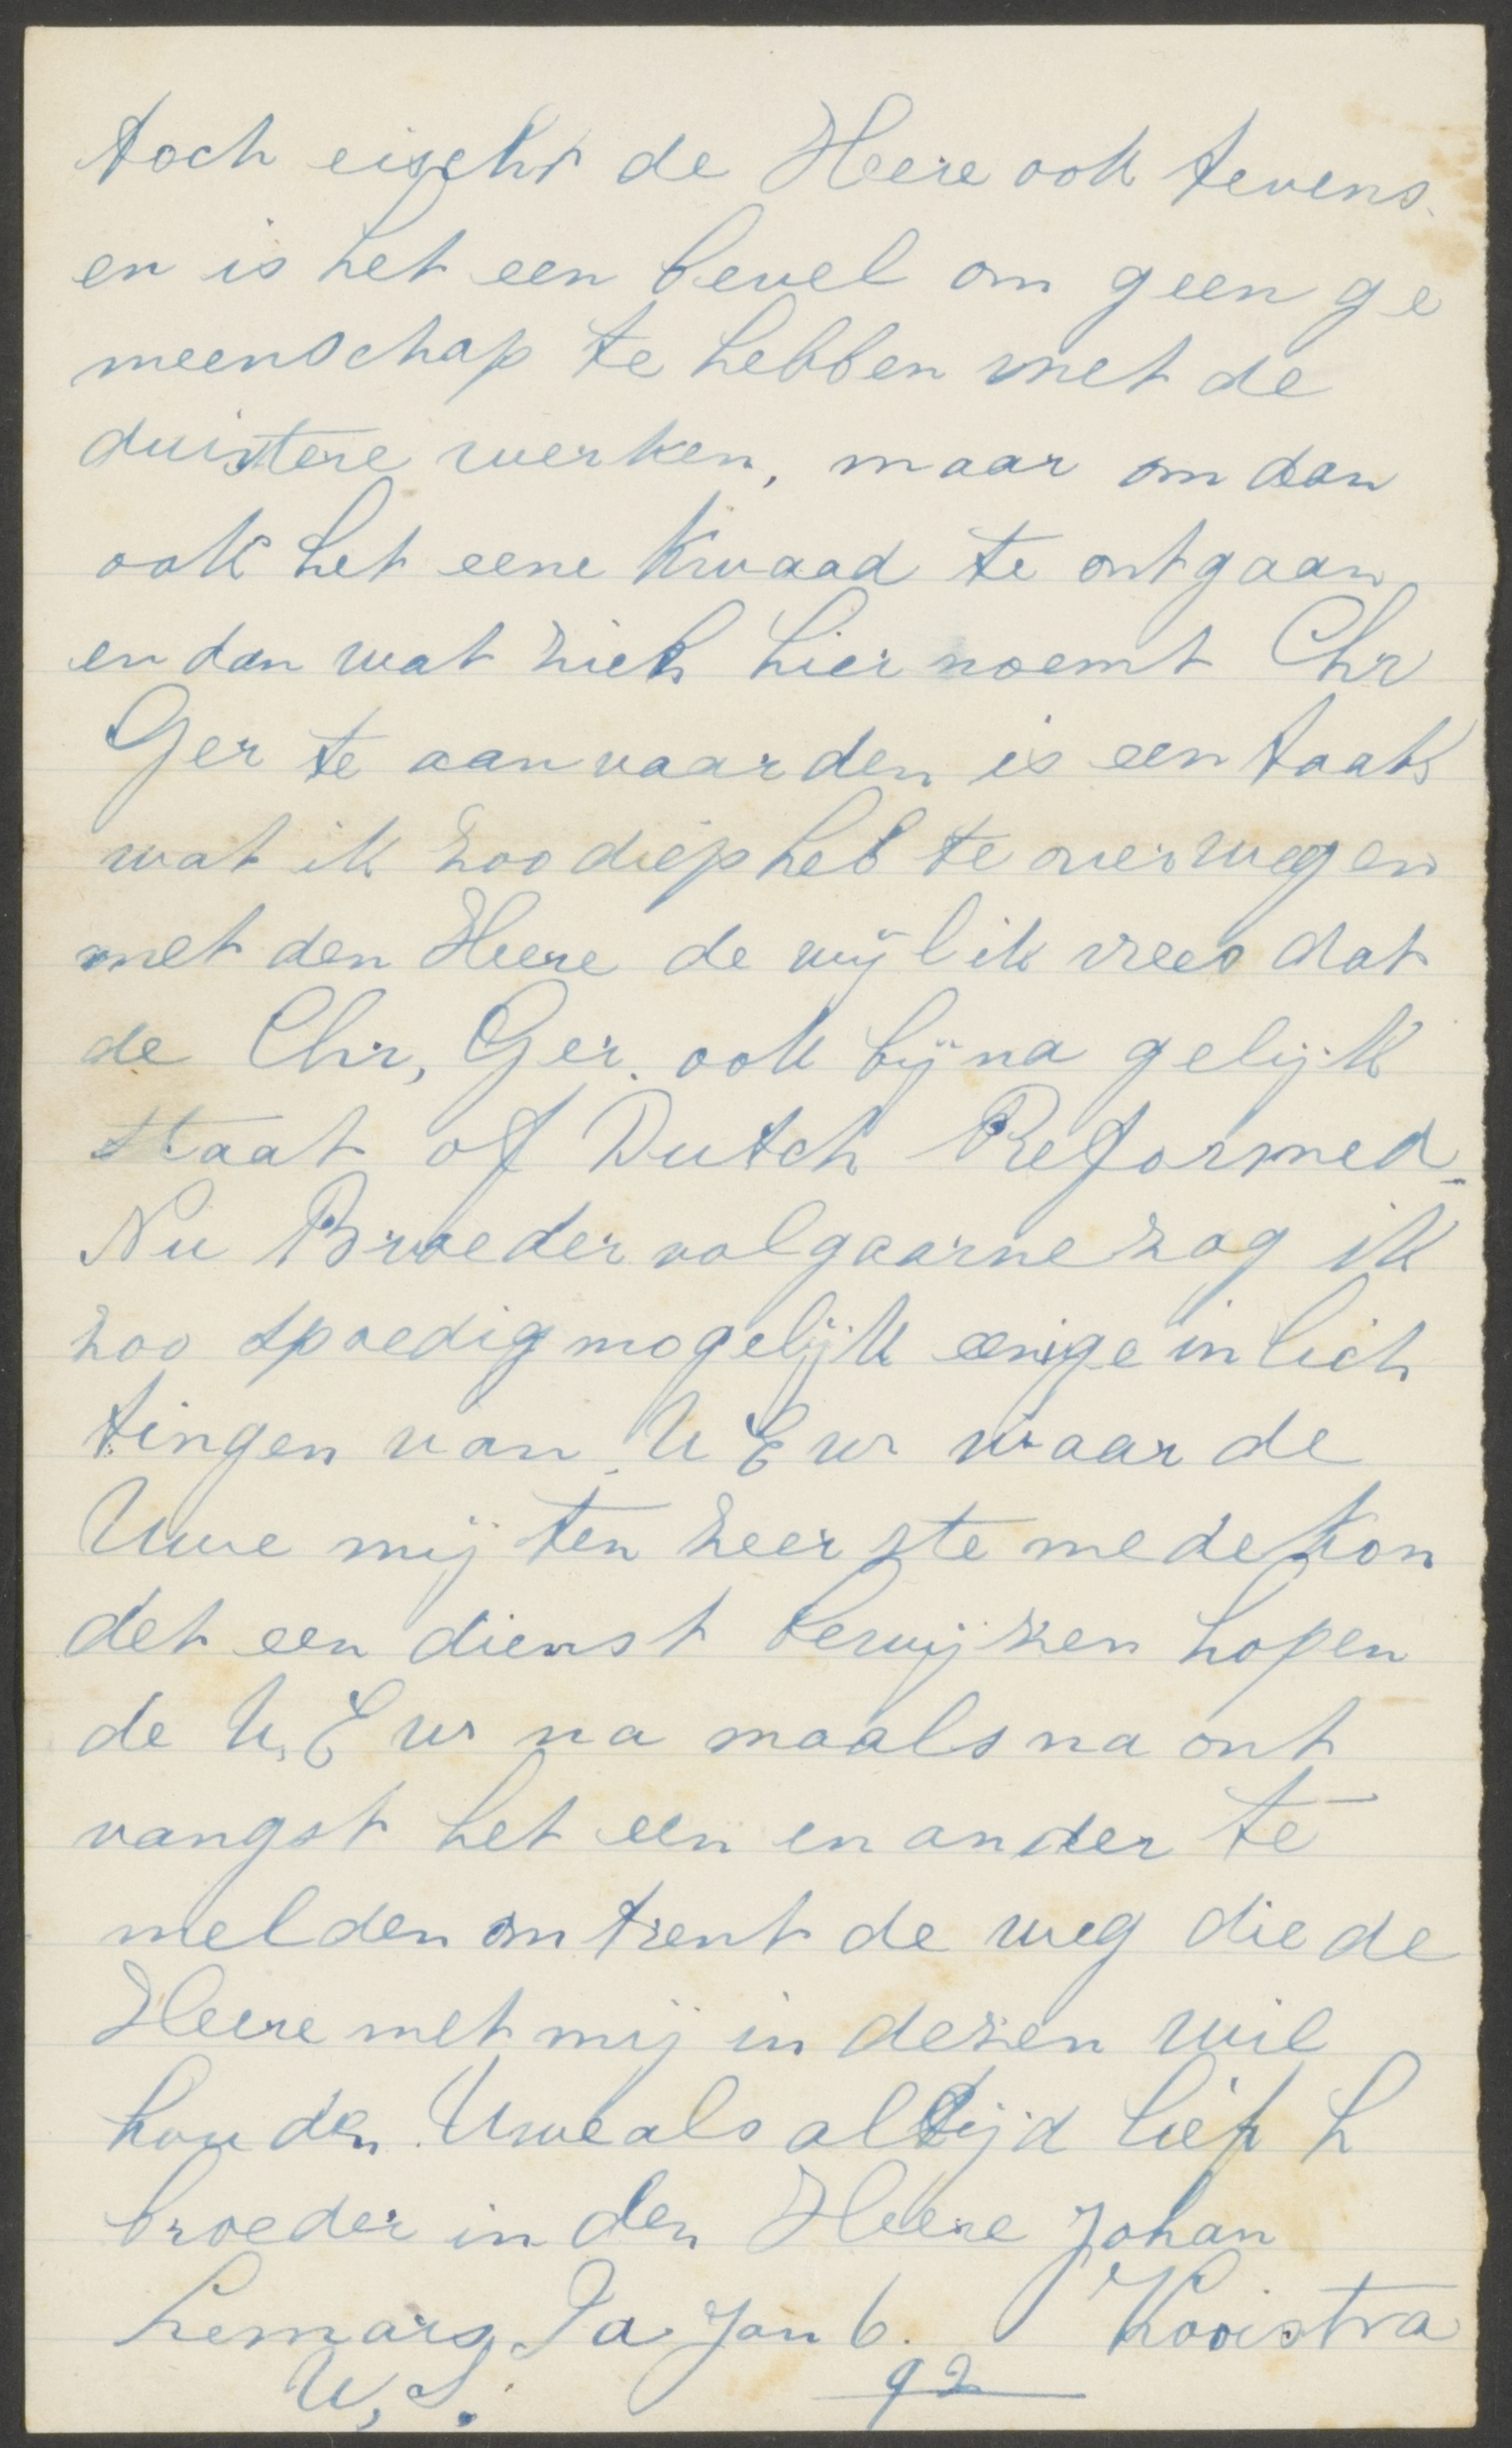 toch eischt de Heere ook tevens
en is het een bevel om geen ge
meenschap te hebben met de
duistere werken, maar om dan
ook het eene kwaad te ontgaan
en dan wat zich hier noemt Chr
Ger te aanvaarden is een taak
wat ik zoo diep heb te overwegen
met den Heere de wijl ik vrees dat
de Chr, Ger. ook bijna gelijk
staat of Dutch Reformed.
Nu Broeder volgaarne zag ik
zoo spoedig mogelijk eenige inlich
tingen van U E w waar de
Uwe mij ten zeerste mede kon
det een dienst bewijzen hopen
de U. E w na maals na ont
vangst het een en ander te
melden om trent de weg die de
Heere met mij in dezen wil
houden. Uwe als altijd lief h
broeder in den Heere Johan
Lemars Ia Jan 6. Kooistra
U, S. 92